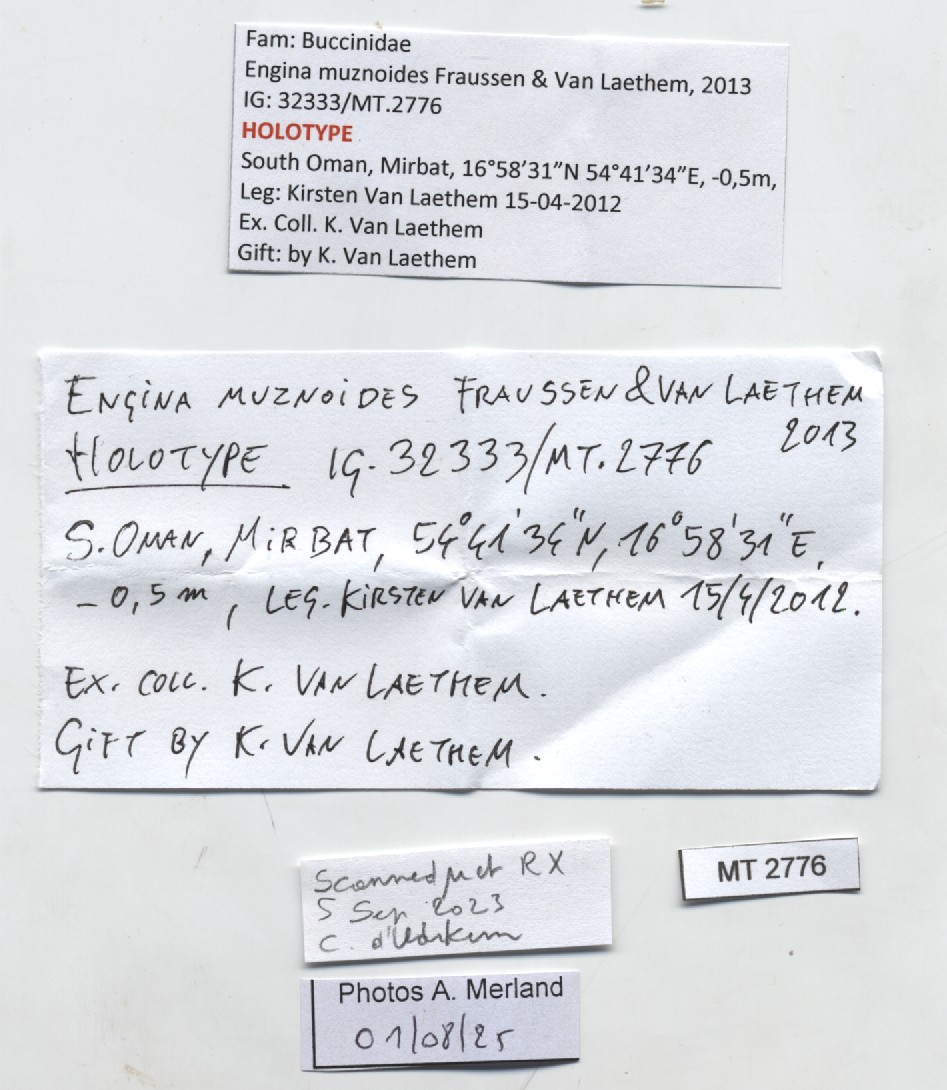 Fam: Buccinidae
Engina muznoides Fraussen & Van Laethem, 2013
IG: 32333/MT.2776
HOLOTYPE
South Oman, Mirbat, 16°58’31”N 54°41’34”E, -0,5m,
Leg: Kirsten Van Laethem 15-04-2012
Ex. Coll. K. Van Laethem
Gift: by K. Van Laethem
ENGINA MUZNOIDES FRAUSSEN & VAN LAETHEM
2013
HOLOTYPE IG. 32333/MT.2776
S. OMAN, MIRBAT, 54°41'34"N, 16°58'31"E,
- 0,5 m, LEG. KIRSTEN VAN LAETHEM 15/4/2012.
EX. COLL. K. VAN LAETHEM.
GIFT BY K. VAN LAETHEM.
Scanned µct RX
5 Sep 2023
C. d'Udekem
MT 2776
Photos A. Merland
01/08/25